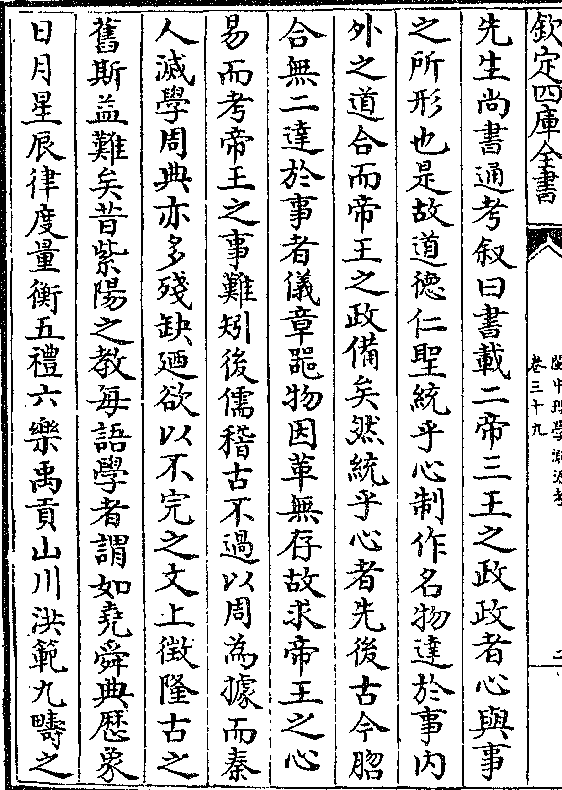 欽定四庫全書
閩中理學淵源考
卷三十九
先生尚書通考叙曰書載二帝三王之政政者心與事
之所形也是故道德仁聖統乎心制作名物達於事内
外之道合而帝王之政備矣然統乎心者先後古今脗
合無二達於事者儀章噐物因革無存故求帝王之心
易而考帝王之事難矧後儒稽古不過以周為據而秦
人滅學周典亦多殘缺廼欲以不完之文上徴隆古之
舊斯益難矣昔紫陽之教每語學者謂如堯舜典歴象
日月星辰律度量衡五禮六樂禹貢山川洪範九疇之